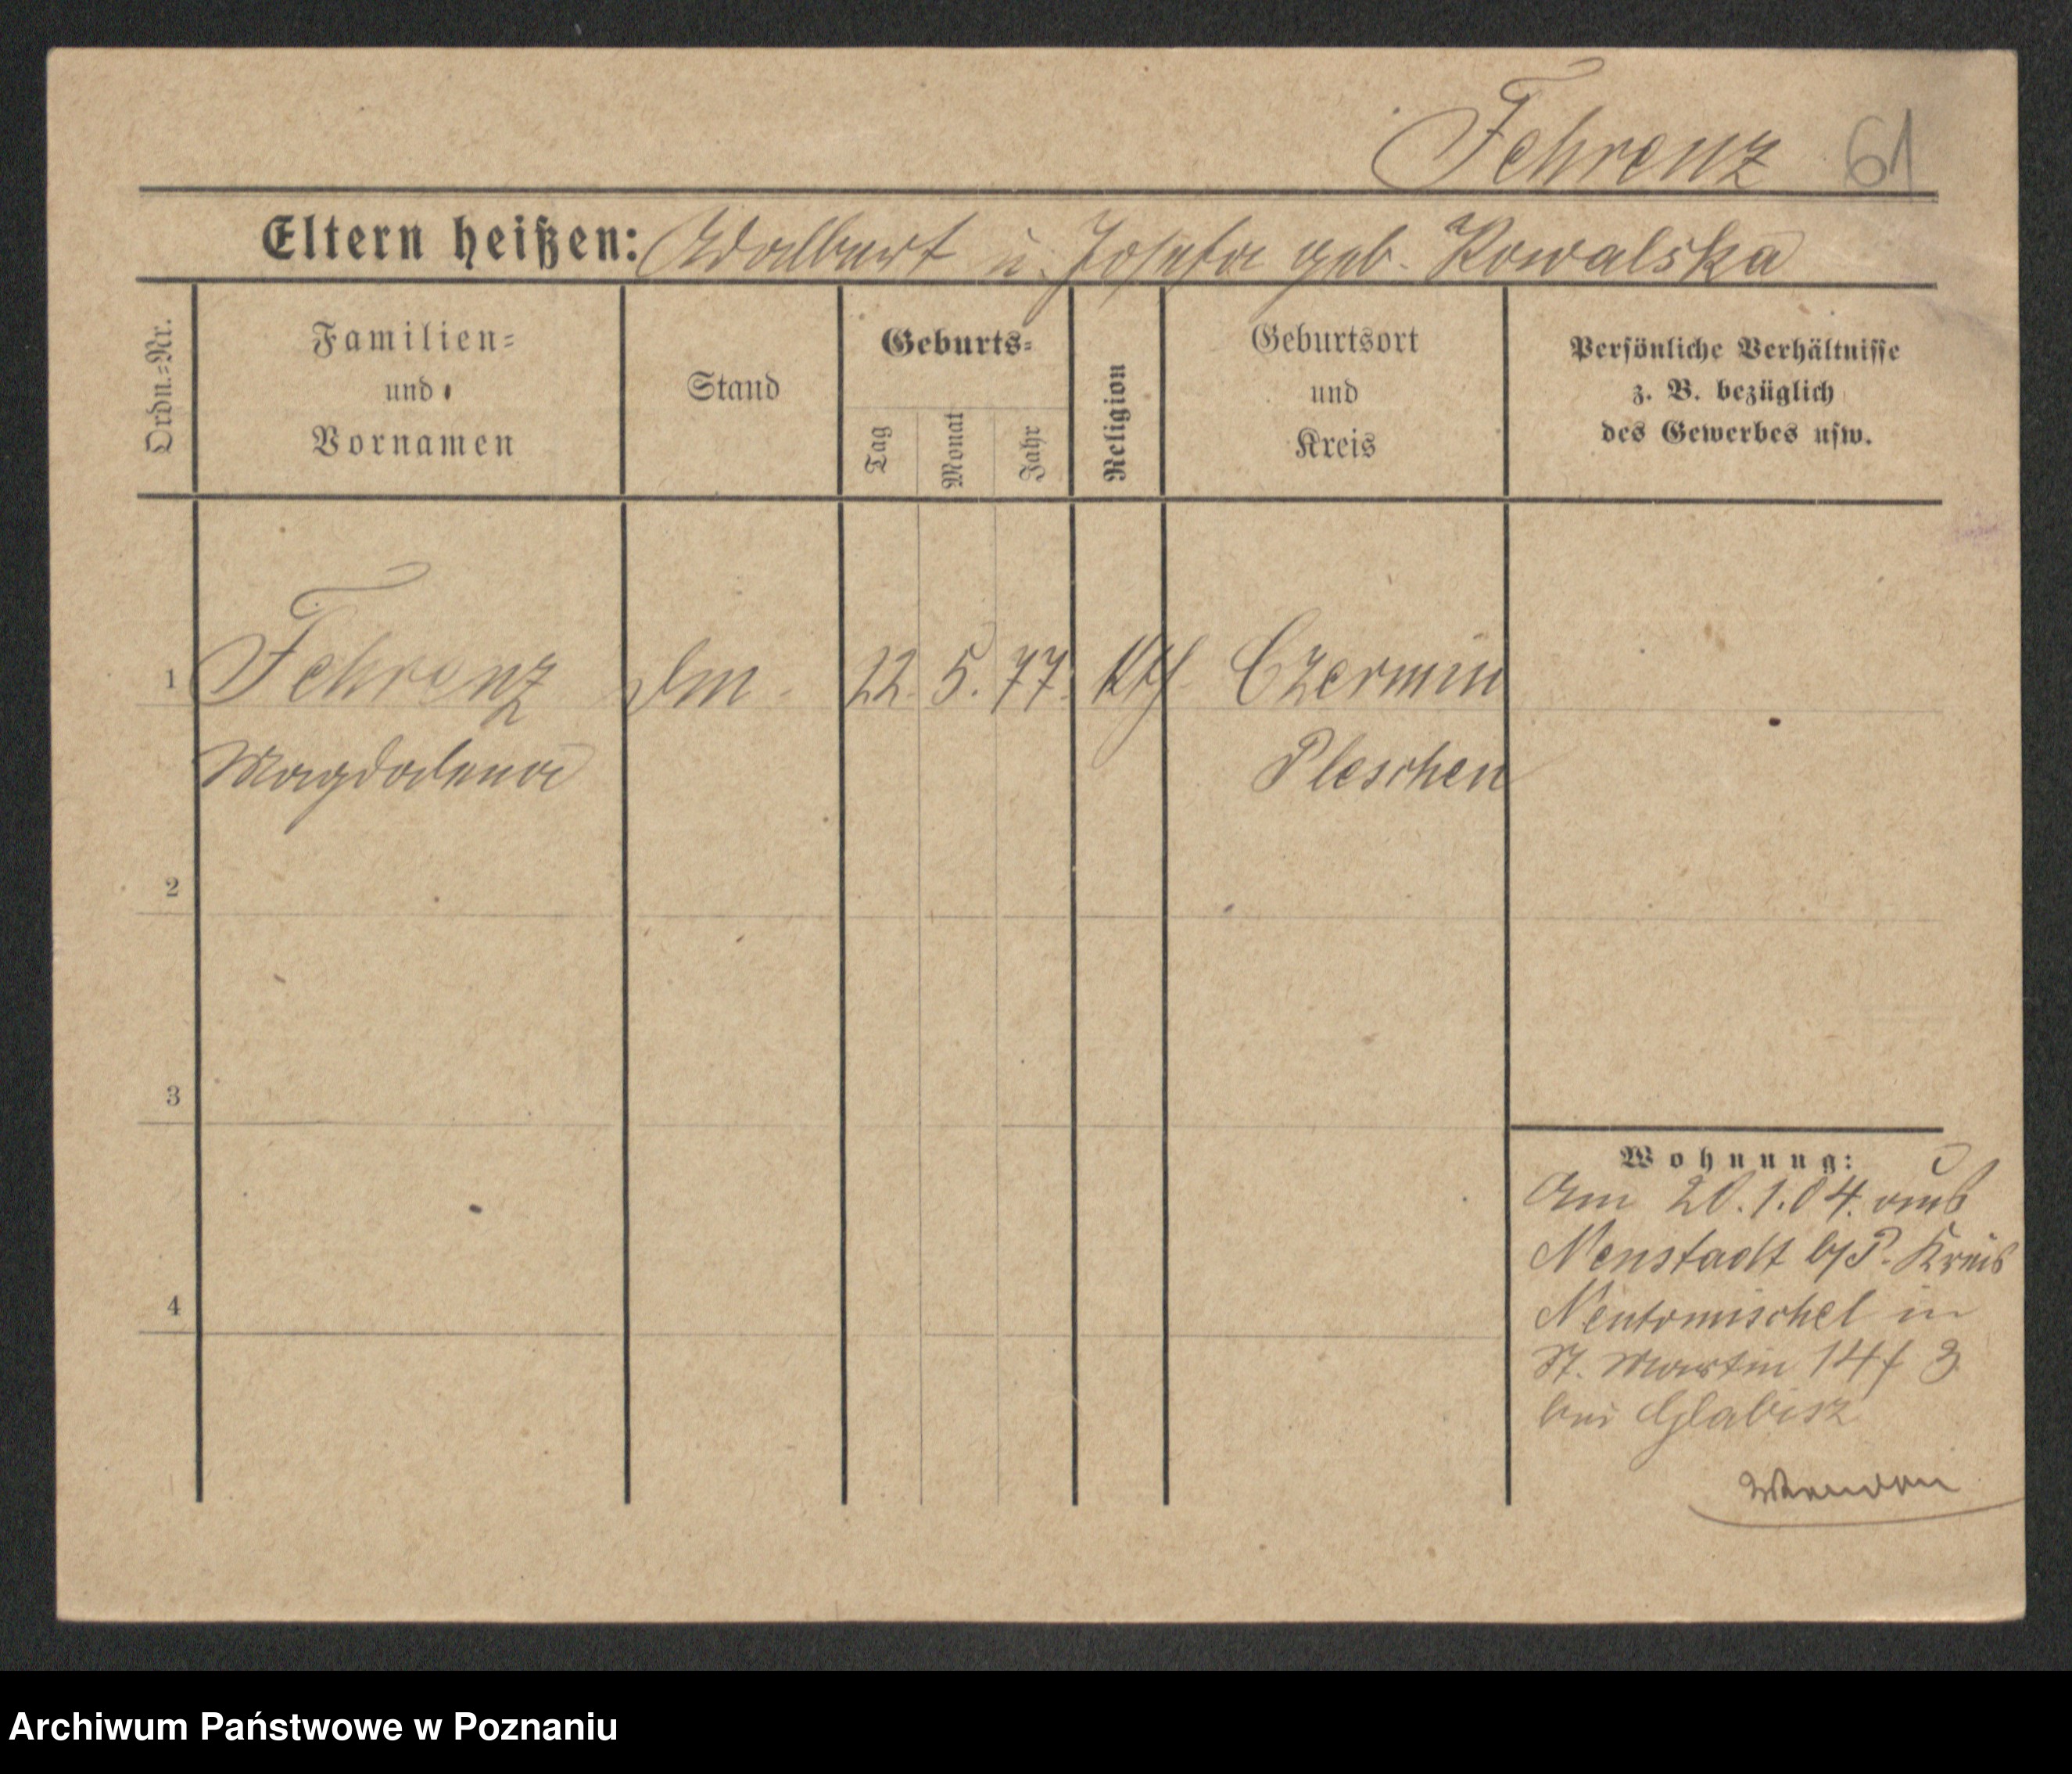 Fehrenz 61
Eltern heißen: Adalbert u. Josefa geb. Kowalska
Ordn.-Nr.
Familien-
und
Vornamen
Stand
Geburts-
Tag
Monat
Jahr
Religion
Geburtsort
und
Kreis
Persönliche Verhältnisse
z. B. bezüglich
des Gewerbes usw.
1 Fehrenz 22. 5. 77. kth Czermin
Magdalena Pleschen
2
3
4
Wohnung:
Am 20.1.04. aus
Neustadt b/P. Kreis
Neutomischel in
St. Martin 14
bei Glabisz
Archiwum Państwowe w Poznaniu